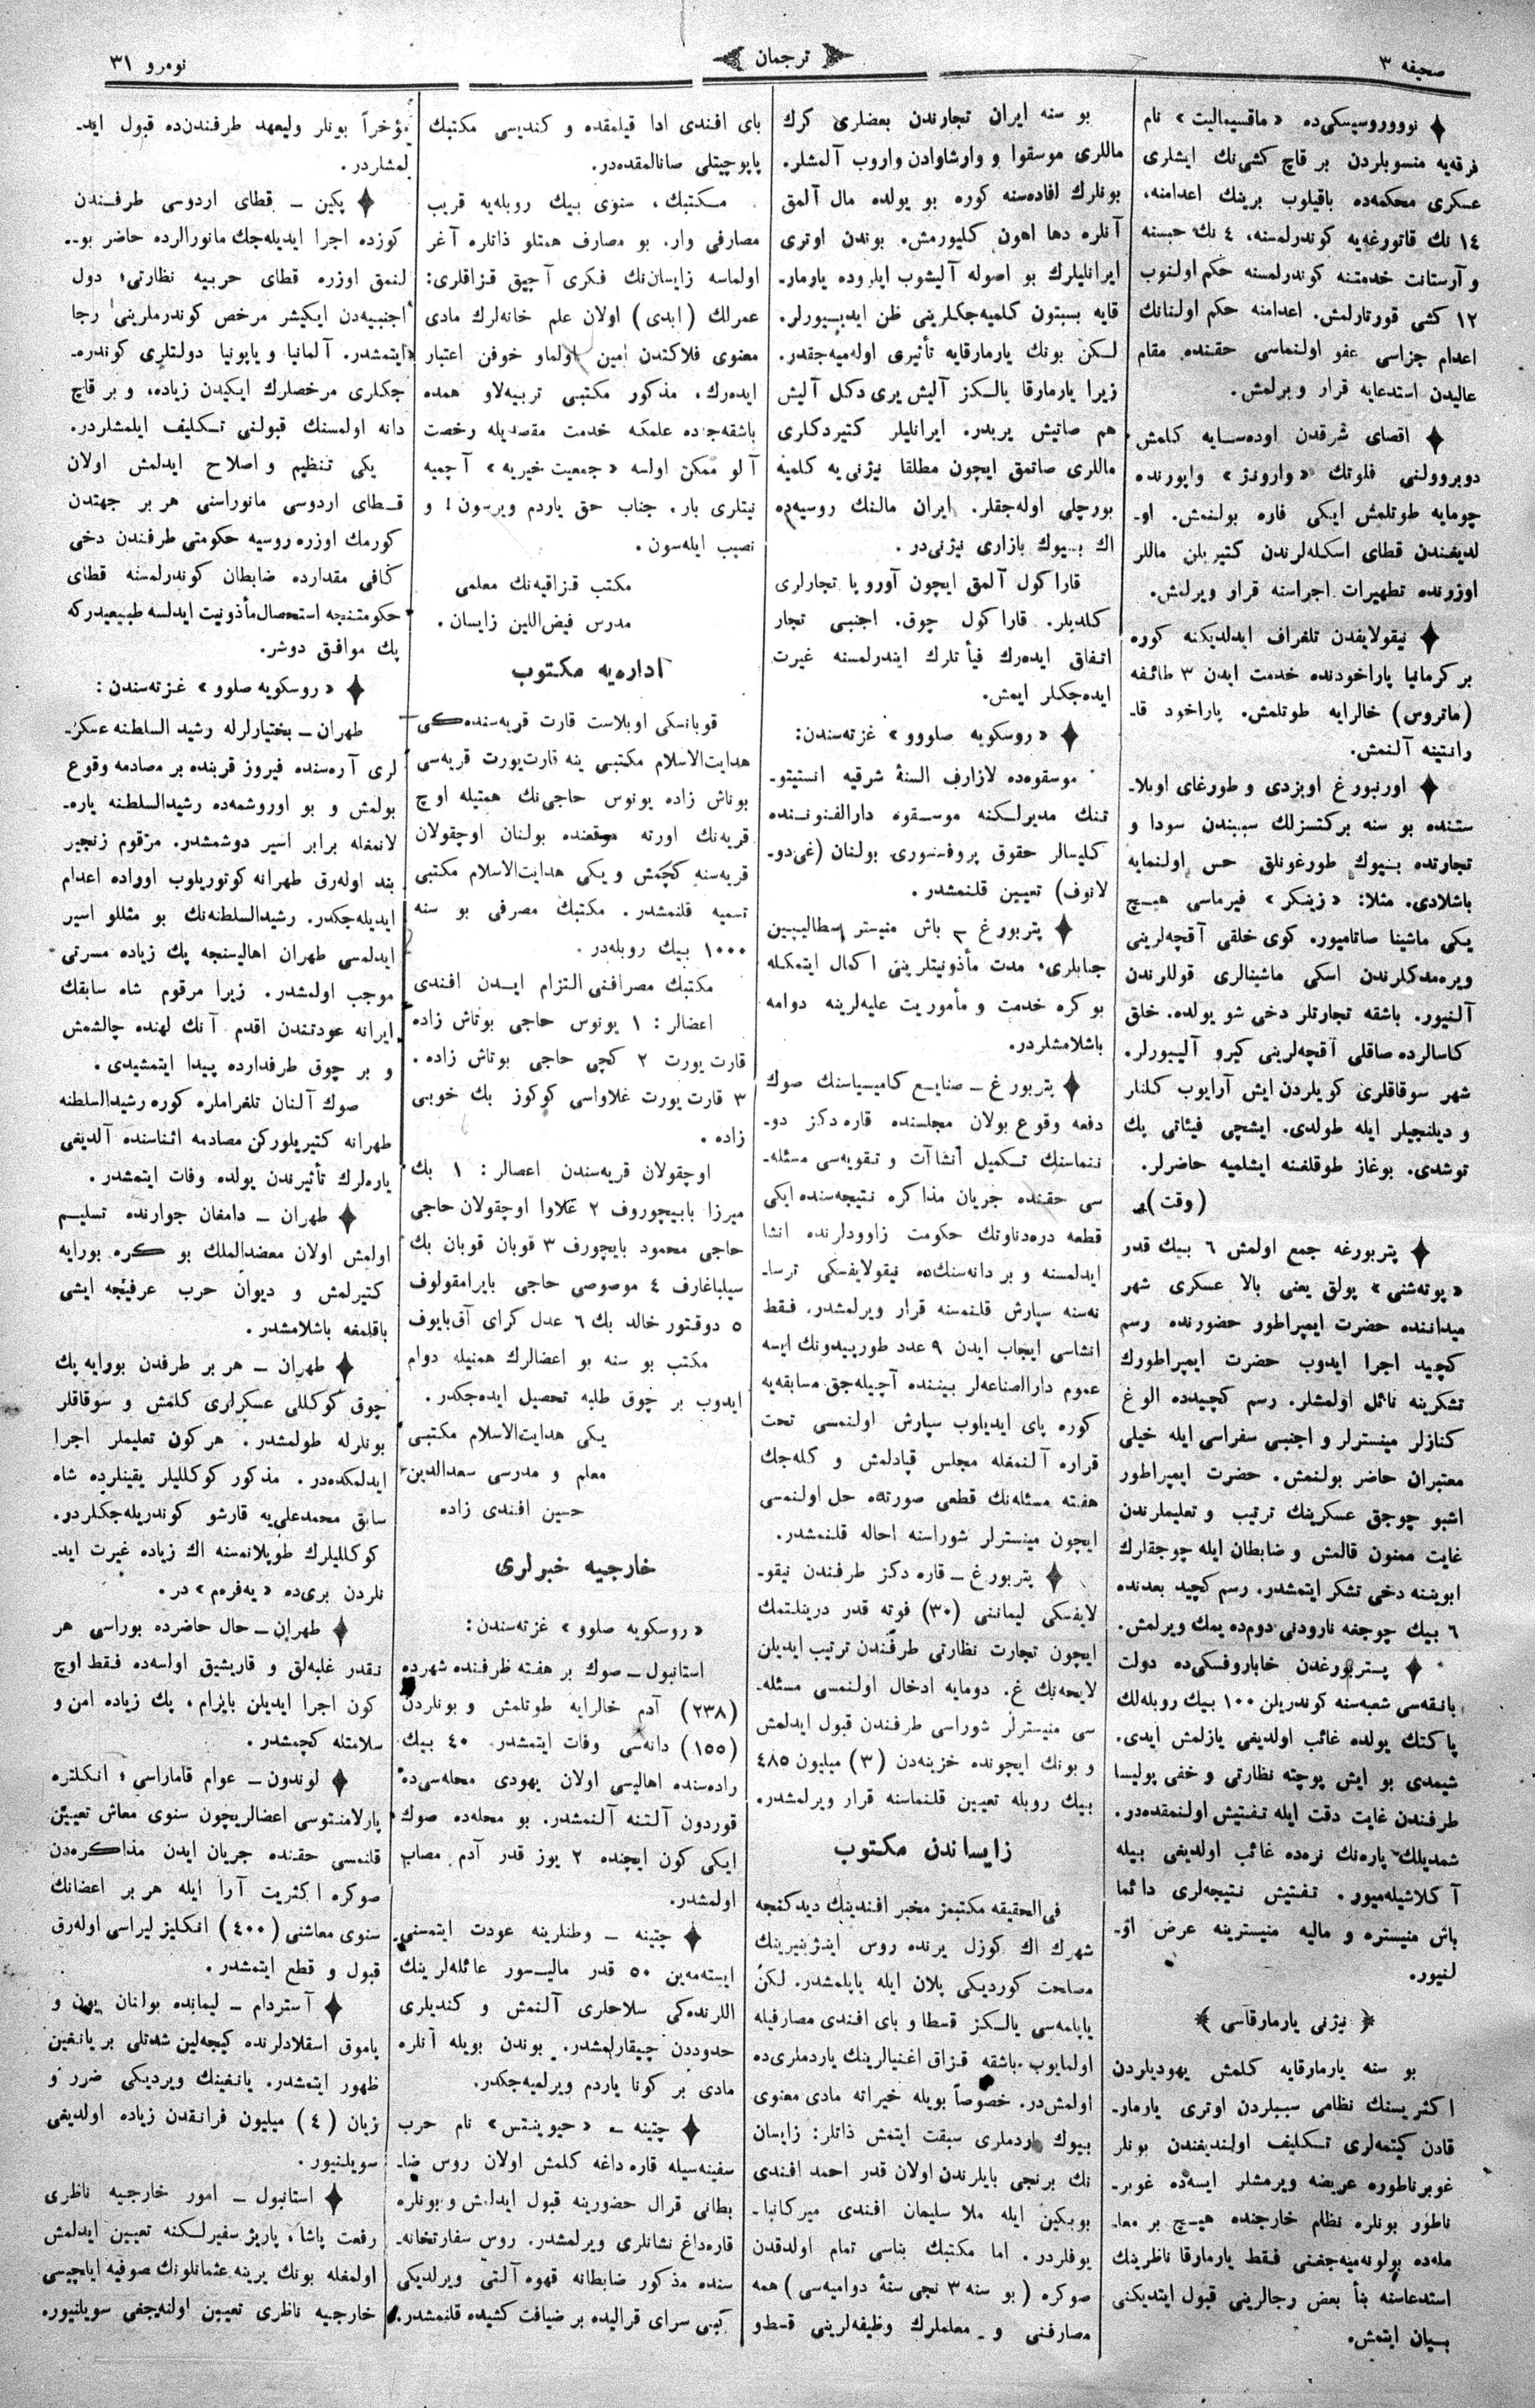 صحیفه ٣
ترجمان
نومرو ٣١
نووروسیسکی‌ده «ماقسیمالیت» نام
فرقه‌یه منسوبلردن بر قاچ کشی‌نك ایشلری
عسکری محکمه‌ده باقیلوب برینك اعدامنه،
١٤ نك قاتورغه‌یه کوندرلمسنه، ٤ نك حبسنه
و آرستانت خدمتنه کوندرلمسنه حکم اولنوب
١٢ کشی قورتارلمش. اعدامنه حکم اولنانك
اعدام جزاسی عفو اولنماسی حقنده مقام
عالیدن استدعایه قرار ویرلمش.
اقصای شرقدن اوده‌سایه کلمش
دوبروولنی فلوتك «وارونژ» واپورنده
چومایه طوتلمش ایکی فاره بولنمش. او-
لدیغندن قطای اسکله‌لرندن کتیریلن ماللر
اوزرنده تطهیرات اجراسنه قرار ویرلمش.
نیقولایفدن تلغراف ایدلدیکنه کوره
بر کرمانیا پاراخودنده خدمت ایدن ٣ طائفه
(ماتروس) خالرایه طوتلمش. پاراخود قا-
رانتینه آلنمش.
اورنبورغ اویزدی و طورغای اوبلا-
ستنده بو سنه برکتسزلك سببندن سودا و
تجارتده بیوك طورغونلق حس اولنمایه
باشلادی. مثلا: «زینکر» فیرماسی هیچ
یکی ماشینا صاتامیور. کوی خلقی آقچه‌لرینی
ویره‌مدکلرندن اسکی ماشینالری قوللرندن
آلنیور. باشقه تجارتلر دخی شو یولده. خلق
کاسالرده صاقلی آقچه‌لرینی کیرو آلیورلر.
شهر سوقاقلری کویلردن ایش آرایوب کلنلر
و دیلنجیلر ایله طولدی. ایشچی فیئاتی پك
توشدی. بوغاز طوقلغنه ایشلمیه حاضرلر.
(وقت)
پتربورغه جمع اولمش ٦ بیك قدر
«پوته‌شنی» پولق یعنی بالا عسکری شهر
میداننده حضرت ایمپراطور حضورنده رسم
کچید اجرا ایدوب حضرت ایمپراطورك
تشکرینه نائل اولمشلر. رسم کچیدده الوغ
کنازلر مینسترلر و اجنبی سفراسی ایله خیلی
معتبران حاضر بولنمش. حضرت ایمپراطور
اشبو چوجق عسکرینك ترتیب و تعلیملرندن
غایت ممنون قالمش و ضابطان ایله چوجقلرك
ابویننه دخی تشکر ایتمشدر. رسم کچید بعدنده
٦ بیك چوجغه نارودنی دومده یمك ویرلمش.
پستربورغدن خاباروفسکی‌ده دولت
بانقه‌سی شعبه‌سنه کوندریلن ١٠٠ بیك روبله‌لك
پاکتك یولده غائب اولدیغی یازلمش ایدی.
شیمدی بو ایش پوچته نظارتی و خفی پولیسا
طرفندن غایت دقت ایله تفتیش اولنمقده‌در.
شمدیلك پاره‌نك نره‌ده غائب اولدیغی بیله
آکلاشیله‌میور. تفتیش نتیجه‌لری دائما
باش منیستره و مالیه منیسترینه عرض او-
لنیور.
نیژنی یارمارقاسی
بو سنه یارمارقایه کلمش یهودیلردن
اکثریسنك نظامی سببلردن اوتری یارمار-
قادن کیتمه‌لری تکلیف اولندیغندن بونلر
غوبرناطوره عریضه ویرمشلر ایسه‌ده غوبر-
ناطور بونلره نظام خارجنده هیچ بر معا-
مله‌ده بولونه‌میه‌جغنی فقط یارمارقا ناظرینك
استدعاسنه بنأ بعض رجالرینی قبول ایتدیکنی
بیان ایتمش.
بو سنه ایران تجارندن بعضلری کرك
ماللری موسقوا و وارشاوادن واروب آلمشلر.
بونلرك افاده‌سنه کوره بو یولده مال آلمق
آنلره دها اهون کلیورمش. بوندن اوتری
ایرانلیلرك بو اصوله آلیشوب ایلروده یارمار-
قایه بسبتون کلمیه‌جکلرینی ظن ایدیورلر.
لکن بونك یارمارقایه تأثیری اوله‌میه‌جقدر.
زیرا یارمارقا یالکز آلیش یری دکل آلیش
هم صاتیش یریدر. ایرانلیلر کتیردکلری
ماللری صاتمق ایچون مطلقا نیژنی‌یه کلمیه
بورچلی اوله‌جقلر. ایران مالنك روسیه‌ده
اك بیوك بازاری نیژنی‌در.
قاراکول آلمق ایچون آوروپا تجارلری
کلدیلر. قاراکول چوق. اجنبی تجار
اتفاق ایده‌رك فیأتلرك ایندرلمسنه غیرت
ایده‌جکلر ایمش.
«روسکویه صلووو» غزته‌سندن:
موسقوه‌ده لازارف السنۀ شرقیه انستیتو-
تنك مدیرلکنه موسقوه دارالفنوننده
کلیسالر حقوق پروفسوری بولنان (غیدو-
لانوف) تعیین قلنمشدر.
پتربورغ – باش منیستر اسطالیپین
جنابلری، مدت مأذونیتلرینی اکمال ایتمکله
بو کره خدمت و مأموریت علیه‌لرینه دوامه
باشلامشلردر.
پتربورغ – صنایع کامیسیاسنك صوك
دفعه وقوع بولان مجلسنده قاره دکز دو-
ننماسنك تکمیل انشاآت و تقویه‌سی مسئله-
سی حقنده جریان مذاکره نتیجه‌سنده ایکی
قطعه دره‌دناوتك حکومت زاوودلرنده انشا
ایدلمسنه و بر دانه‌سنك‌ده نیقولایفسکی ترسا-
نه‌سنه سپارش قلنمسنه قرار ویرلمشدر. فقط
انشاسی ایجاب ایدن ٩ عدد طورپیدونك ایسه
عموم دارالصناعه‌لر بیننده آچیله‌جق مسابقه‌یه
کوره پای ایدیلوب سپارش اولنمسی تحت
قراره آلنمغله مجلس قپادلمش و کله‌جك
هفته مسئله‌نك قطعی صورتده حل اولنمسی
ایچون مینسترلر شوراسنه احاله قلنمشدر.
پتربورغ – قاره دکز طرفندن نیقو-
لایفسکی لیماننی (٣٠) فوته قدر درینلتمك
ایچون تجارت نظارتی طرفندن ترتیب ایدیلن
لایحه‌نك غ. دومایه ادخال اولنمسی مسئله-
سی منیسترلر شوراسی طرفندن قبول ایدلمش
و بونك ایچونده خزینه‌دن (٣) میلیون ٤٨٥
بیك روبله تعیین قلنماسنه قرار ویرلمشدر.
زایساندن مکتوب
فی‌الحقیقه مکتبمز مخبر افندینك دیدکنجه
شهرك اك کوزل یرنده روس اینژینیرینك
مصلحت کوردیکی پلان ایله یاپلمشدر. لکن
یاپلمه‌سی یالکز قسطا و بای افندی مصارفیله
اولمایوب باشقه قزاق اغنیالرینك یاردملری‌ده
اولمش‌در. خصوصاً بویله خیراته مادی معنوی
بیوك یاردملری سبقت ایتمش ذاتلر: زایسان
نك برنجی بایلرندن اولان قدر احمد افندی
بوبکین ایله ملا سلیمان افندی میرکانبا-
یوفلردر. اما مکتبك بناسی تمام اولدقدن
صوکره (بو سنه ٣ نجی سنۀ دوامیه‌سی) همه
مصارفنی و معلملرك وظیفه‌لرینی قسطو
بای افندی ادا قیلمقده و کندیسی مکتبك
پاپوچیتلی صانالمقده‌در.
مکتبك، سنوی بیك روبله‌یه قریب
مصارفی وار. بو مصارف همتلو ذاتلره آغر
اولماسه زایسان‌نك فکری آچیق قزاقلری:
عمرلك (ابدی) اولان علم خانه‌لرك مادی
معنوی فلاکتدن امین اولماو خوفن اعتبار
ایده‌رك، مذکور مکتبی تربیه‌لاو همده
باشقه‌جه‌ده علمکه خدمت مقصدیله رخصت
آلو ممکن اولسه «جمعیت خیریه» آچمیه
نیتلری بار. جناب حق یاردم ویرسون! و
نصیب ایله‌سون.
مکتب قزاقیه‌نك معلمی
مدرس فیض‌اللین زایسان.
اداره‌یه مکتوب
قوبانسکی اوبلاست قارت قریه‌سنده‌کی
هدایت‌الاسلام مکتبی ینه قارت‌یورت قریه‌سی
بوتاش زاده یونوس حاجی‌نك همتیله اوچ
قریه‌نك اورته موقعنده بولنان اوچقولان
قریه‌سنه کچمش و یکی هدایت‌الاسلام مکتبی
تسمیه قلنمشدر. مکتبك مصرفی بو سنه
١٠٠٠ بیك روبله‌در.
مکتبك مصرافنی التزام ایدن افندی
اعضالر: ١ یونوس حاجی بوتاش زاده
قارت یورت ٢ کچی حاجی بوتاش زاده.
٣ قارت یورت غلاواسی کوکوز بك خوبی
زاده.
اوچقولان قریه‌سندن اعضالر: ١ بك
میرزا بابیچوروف ٢ غلاوا اوچقولان حاجی
حاجی محمود بایچورف ٣ قوبان قوبان بك
سیلباغارف ٤ موصوصی حاجی بایرامقولوف
٥ دوقتور خالد بك ٦ عدل کرای آق‌بایوف
مکتب بو سنه بو اعضالرك همتیله دوام
ایدوب بر چوق طلبه تحصیل ایده‌جکدر.
یکی هدایت‌الاسلام مکتبی
معلم و مدرسی سعدالدین
حسین افندی زاده
خارجیه خبرلری
«روسکویه صلوو» غزته‌سندن:
استانبول – صوك بر هفته ظرفنده شهرده
(٢٣٨) آدم خالرایه طوتلمش و بونلردن
(١٥٥) دانه‌سی وفات ایتمشدر. ٤٠ بیك
راده‌سنده اهالیسی اولان یهودی محله‌سی‌ده
قوردون آلتنه آلنمشدر. بو محله‌ده صوك
ایکی کون ایچنده ٢ یوز قدر آدم مصاب
اولمشدر.
چتینه – وطنلرینه عودت ایتمسنی
ایسته‌مه‌ین ٥٠ قدر مالیسور عائله‌لرینك
اللرنده‌کی سلاحلری آلنمش و کندیلری
حدوددن چیقارلمشدر. بوندن بویله آنلره
مادی بر کونا یاردم ویرلمیه‌جکدر.
چتینه – «حیوینتس» نام حرب
سفینه‌سیله قاره داغه کلمش اولان روس ضا-
بطانی قرال حضورینه قبول ایدلمش و بونلره
قاره‌داغ نشانلری ویرلمشدر. روس سفارتخانه-
سنده مذکور ضابطانه قهوه آلتی ویرلدیکی
کبی سرای قرالیده بر ضیافت کشیده قلنمشدر.
مؤخراً بونلر ولیعهد طرفندن‌ده قبول اید-
لمشلردر.
پکین – قطای اردوسی طرفندن
کوزده اجرا ایدیله‌جك مانورالرده حاضر بو-
لنمق اوزره قطای حربیه نظارتی، دول
اجنبیه‌دن ایکیشر مرخص کوندرملرینی رجا
ایتمشدر. آلمانیا و یاپونیا دولتلری کوندره-
جکلری مرخصلرك ایکیدن زیاده، و بر قاچ
دانه اولمسنك قبولنی تکلیف ایلمشلردر.
یکی تنظیم و اصلاح ایدلمش اولان
قطای اردوسی مانوراسنی هر بر جهتدن
کورمك اوزره روسیه حکومتی طرفندن دخی
کافی مقدارده ضابطان کوندرلمسنه قطای
حکومتنجه استحصال مأذونیت ایدلسه طبیعیدرکه
پك موافق دوشر.
«روسکویه صلوو» غزته‌سندن:
طهران – بختیارلرله رشید السلطنه عسکر-
لری آره‌سنده فیروز قربنده بر مصادمه وقوع
بولمش و بو اوروشمه‌ده رشیدالسلطنه یاره-
لانمغله برابر اسیر دوشمشدر. مرقوم زنجیر
بند اوله‌رق طهرانه کوتوریلوب اوراده اعدام
ایدیله‌جکدر. رشیدالسلطنه‌نك بو مثللو اسیر
ایدلمسی طهران اهالیسنجه پك زیاده مسرتی
موجب اولمشدر. زیرا مرقوم شاه سابقك
ایرانه عودتندن اقدم آنك لهنده چالشمش
و بر چوق طرفدارده پیدا ایتمشیدی.
صوك آلنان تلغراملره کوره رشیدالسلطنه
طهرانه کتیریلورکن مصادمه اثناسنده آلدیغی
یاره‌لرك تأثیرندن یولده وفات ایتمشدر.
طهران – دامغان جوارنده تسلیم
اولمش اولان معضدالملك بو کره بورایه
کتیرلمش و دیوان حرب عرفیجه ایشی
باقلمغه باشلامشدر.
طهران – هر بر طرفدن بورایه پك
چوق کوکللی عسکرلری کلمش و سوقاقلر
بونلرله طولمشدر. هر کون تعلیملر اجرا
ایدلمکده‌در. مذکور کوکللیلر یقینلرده شاه
سابق محمدعلی‌یه قارشو کوندریله‌جکلردر.
کوکللیلرك طوپلانه‌سنه اك زیاده غیرت ایدـ
نلردن بری‌ده «یه‌فره‌م» در.
طهران – حال حاضرده بوراسی هر
نقدر غلبه‌لق و قاریشیق اولسه‌ده فقط اوچ
کون اجرا ایدیلن بایرام. پك زیاده امن و
سلامتله کچمشدر.
لوندون – عوام قاماراسی؛ انکلتره
پارلامنتوسی اعضالریچون سنوی معاش تعیین
قلنمسی حقنده جریان ایدن مذاکره‌دن
صوکره اکثریت آرا ایله هر بر اعضانك
سنوی معاشنی (٤٠٠) انکلیز لیراسی اوله‌رق
قبول و قطع ایتمشدر.
آستردام – لیمانده بولنان یون و
پاموق اسقلادلرنده کیچه‌لین شدتلی بر یانغین
ظهور ایتمشدر. یانغینك ویردیکی ضرر و
زیان (٤) میلیون فرانقدن زیاده اولدیغی
سویلنیور.
استانبول – امور خارجیه ناظری
رفعت پاشا، پاریژ سفیرلکنه تعیین ایدلمش
اولمغله بونك یرینه عثمانلونك صوفیه ایلچیسی
خارجیه ناظری تعیین اولنه‌جغی سویلنیور.